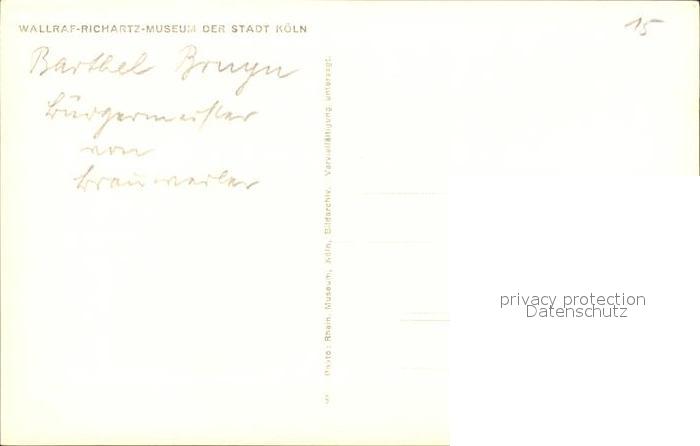 WALLRAF-RICHARTZ-MUSEUM DER STADT KÖLN
15
Barthel Bruyn
Bürgermeister
von
Brauweiler
Photo: Rhein. Museum, Köln, Bildarchiv. Vervielfältigung untersagt.
privacy protection
Datenschutz